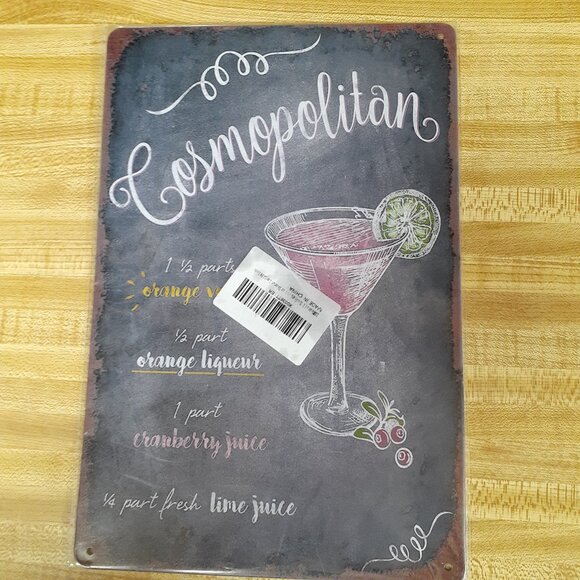 Cosmopolitan
1 ½ parts
orange
½ part
orange liqueur
1 part
cranberry juice
¼ part fresh lime juice
MADE IN CHINA